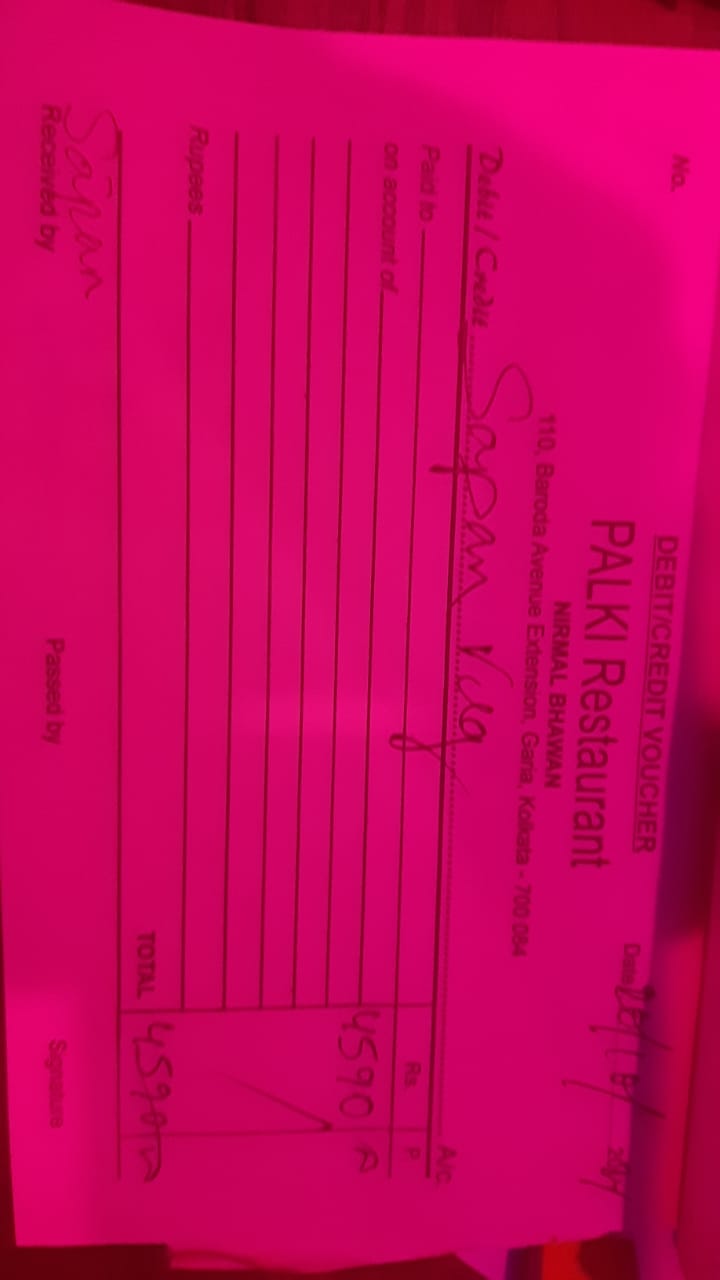 No.
DEBIT/CREDIT VOUCHER
PALKI Restaurant
NIRMAL BHAWAN
110, Baroda Avenue Extension, Garia, Kolkata - 700 084
Date
Debit / Credit Sapan A/c.
Paid to Rs. P.
on account of 4590
Rupees
TOTAL 4590
Sapan
Received by Passed by Signature